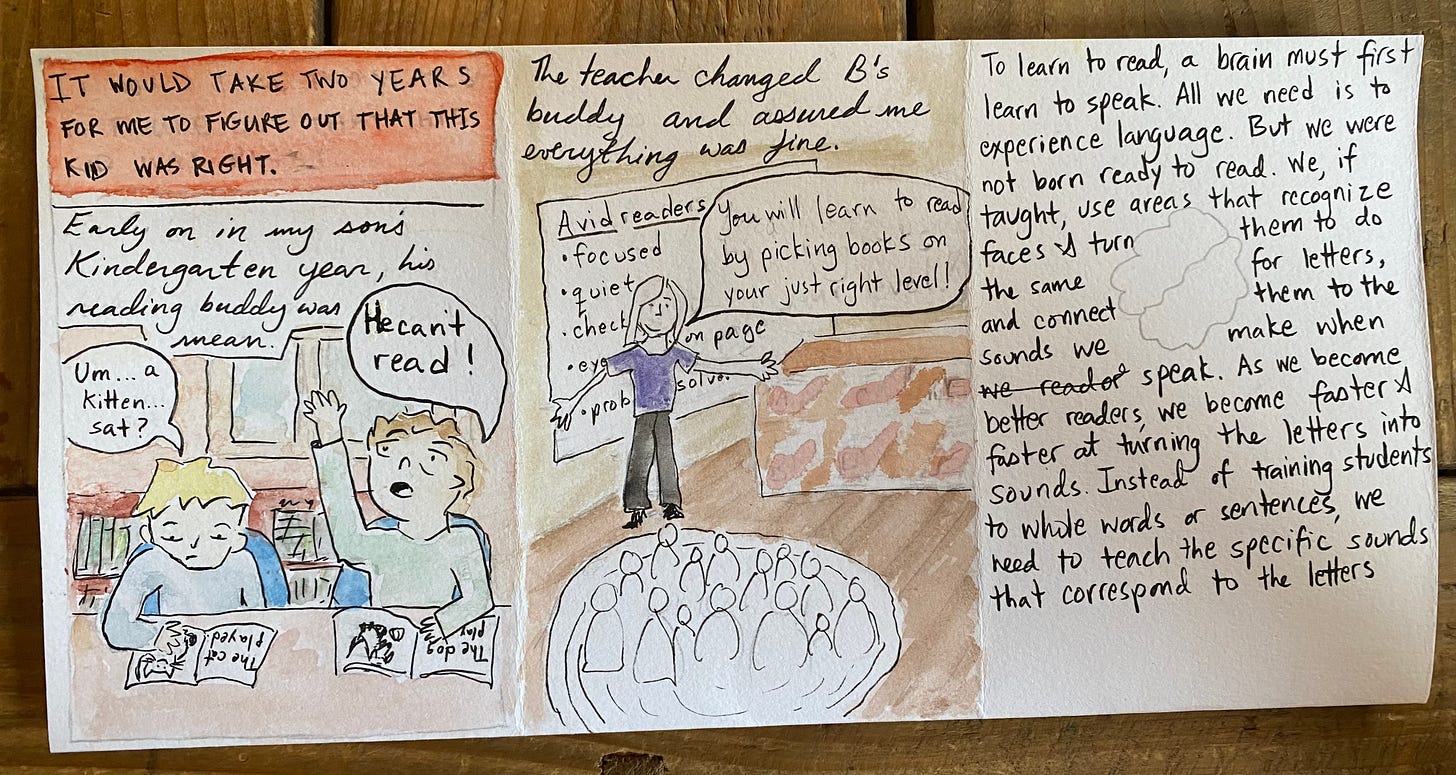 IT WOULD TAKE TWO YEARS
FOR ME TO FIGURE OUT THAT THIS
KID WAS RIGHT.
Early on in my son's
Kindergarten year, his
reading buddy was
mean.
Um... a
kitten...
sat?
He can't
read!
The cat
played
The dog
play
The teacher changed B's
buddy and assured me
everything was fine.
Avid readers
• focused
• quiet
• check
on page
• eye
solve.
• prob
You will learn to read
by picking books on
your just right level!
To learn to read, a brain must first
learn to speak. All we need is to
experience language. But we were
not born ready to read. We, if
taught, use areas that recognize
faces & turn them to do
the same for letters,
and connect them to the
sounds we make when
we read or speak. As we become
better readers, we become faster &
faster at turning the letters into
sounds. Instead of training students
to whole words or sentences, we
need to teach the specific sounds
that correspond to the letters